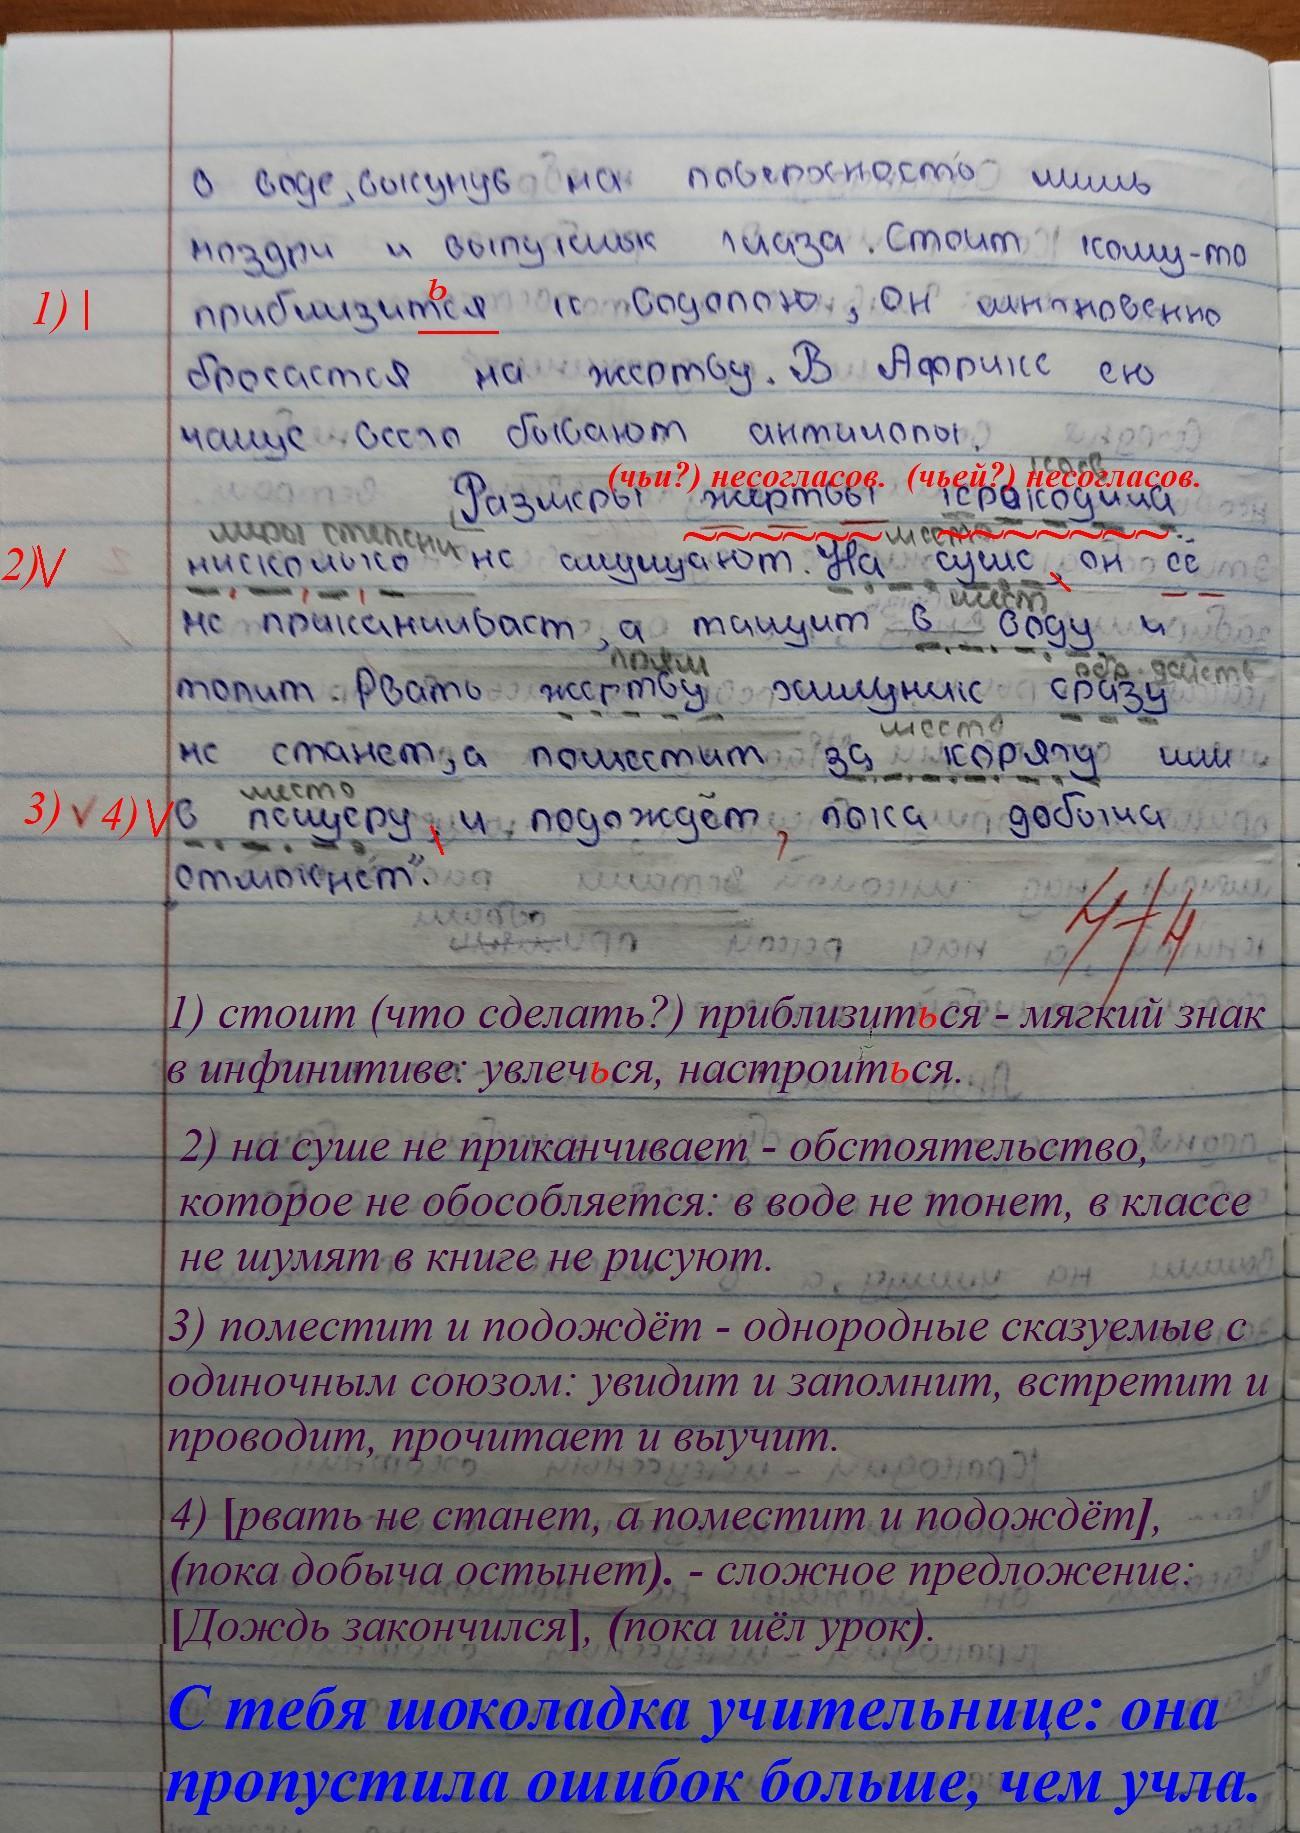 в воде, высунув на поверхность лишь
ноздри и выпуклых глаза. Стоит кому-то
ь
1) | приблизится к водопою, он мгновенно
бросается на жертву. В Африке ею
чаще всего бывают антилопы.
(чьи?) несогласов. (чьей?) несогласов.
Размеры жертвы крокодила
меры степени место
2)V нисколько не смущают. На суше, он её
мест
не приканчивает, а тащит в воду и
прям обр. действ
топит. Рвать жертву хищник сразу
место
не станет, а поместит за корягу или
место
3) V 4) V в пещеру, и подождёт, пока добыча
отмокнет".
4/4
1) стоит (что сделать?) приблизиться - мягкий знак
в инфинитиве: увлечься, настроиться.
2) на суше не приканчивает - обстоятельство,
которое не обособляется: в воде не тонет, в классе
не шумят в книге не рисуют.
3) поместит и подождёт - однородные сказуемые с
одиночным союзом: увидит и запомнит, встретит и
проводит, прочитает и выучит.
4) [рвать не станет, а поместит и подождёт],
(пока добыча остынет). - сложное предложение:
[Дождь закончился], (пока шёл урок).
С тебя шоколадка учительнице: она
пропустила ошибок больше, чем учла.